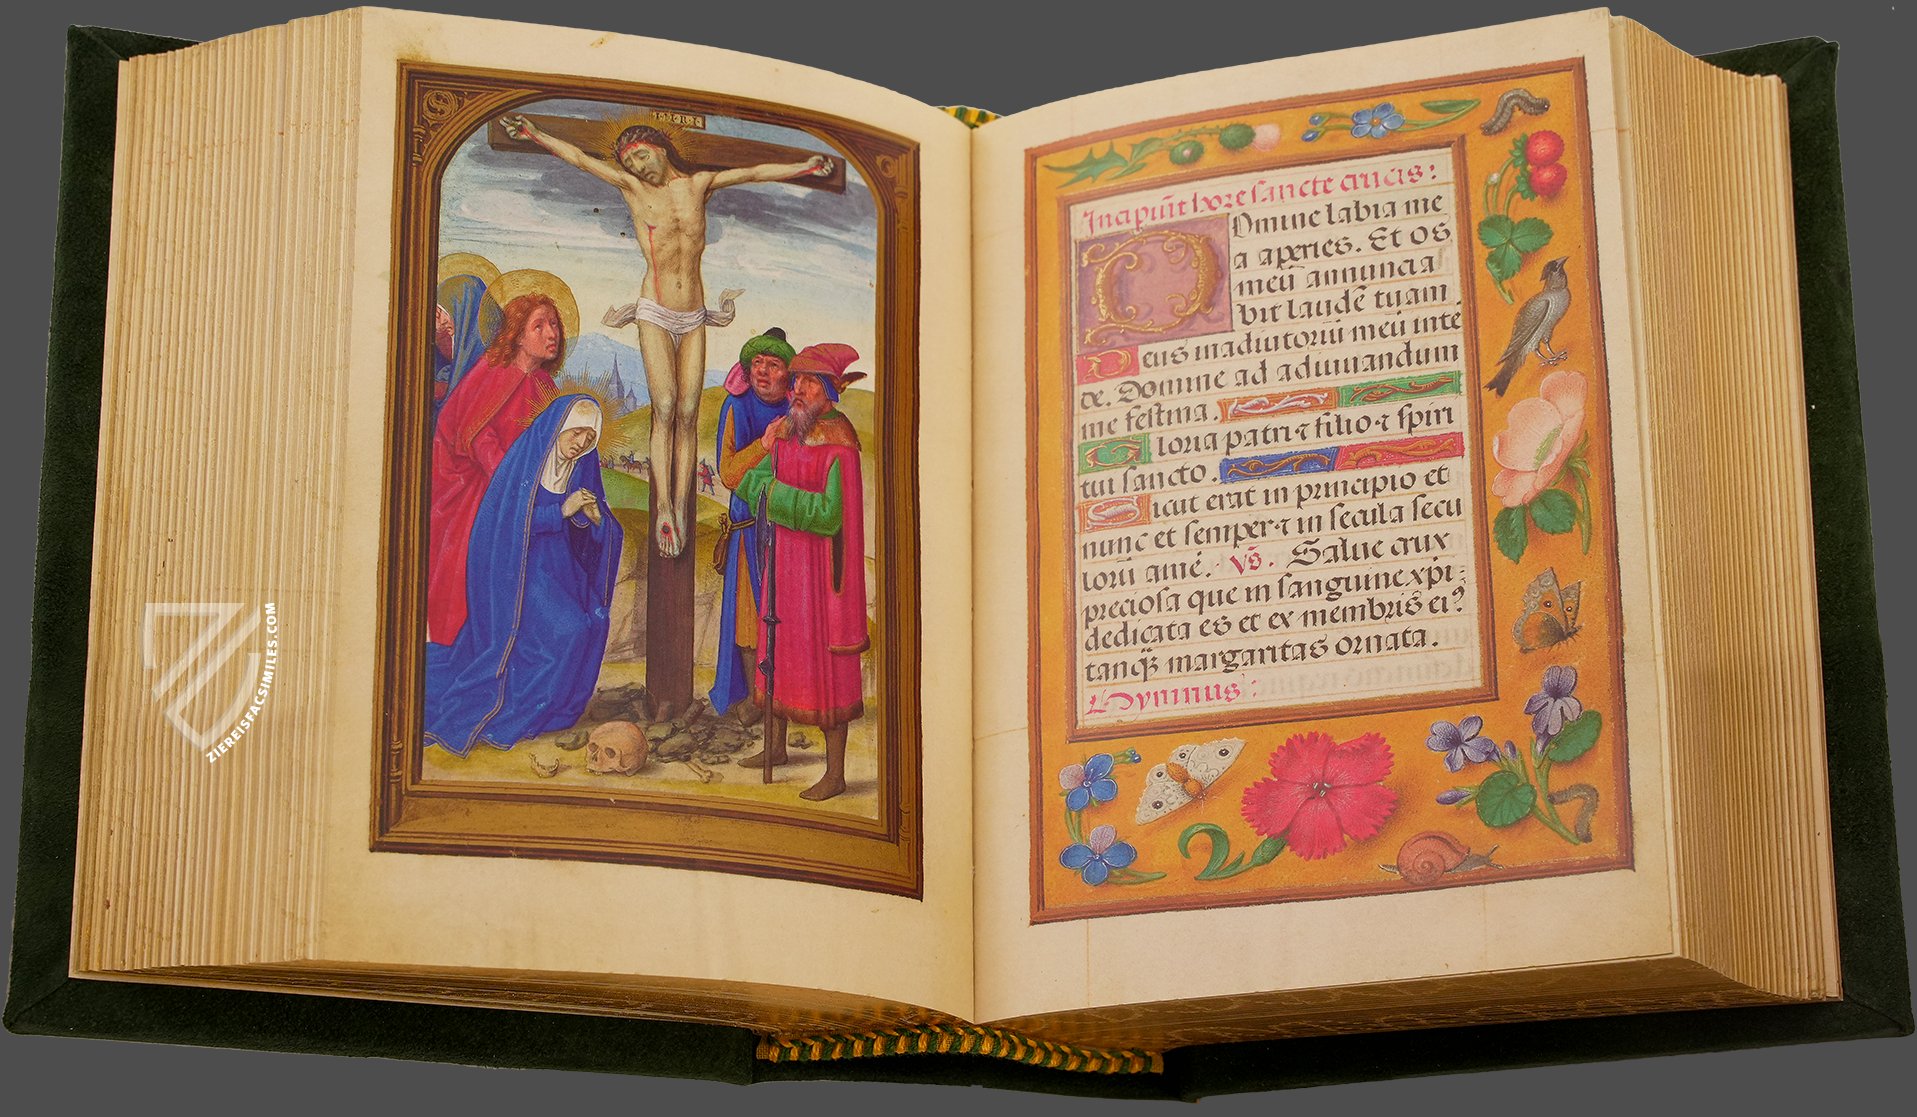 I·N·R·I
Incipiūt hore sancte crucis:
Domine labia me
a aperies. Et os
meū annuncia
bit laudē tuam.
Deus in adiutoriū meū inte
de. Domine ad adiuuandum
me festina.
Gloria patri ⁊ filio ⁊ spiri
tui sancto.
Sicut erat in principio et
nunc et semper ⁊ in secula secu
lorū amē. Vs̄. Salue crux
preciosa que in sanguine xpi-
dedicata es et ex membris eiꝰ
tanq̄ʒ margaritas ornata.
Hymnus:
ZIEREISFACSIMILES.COM